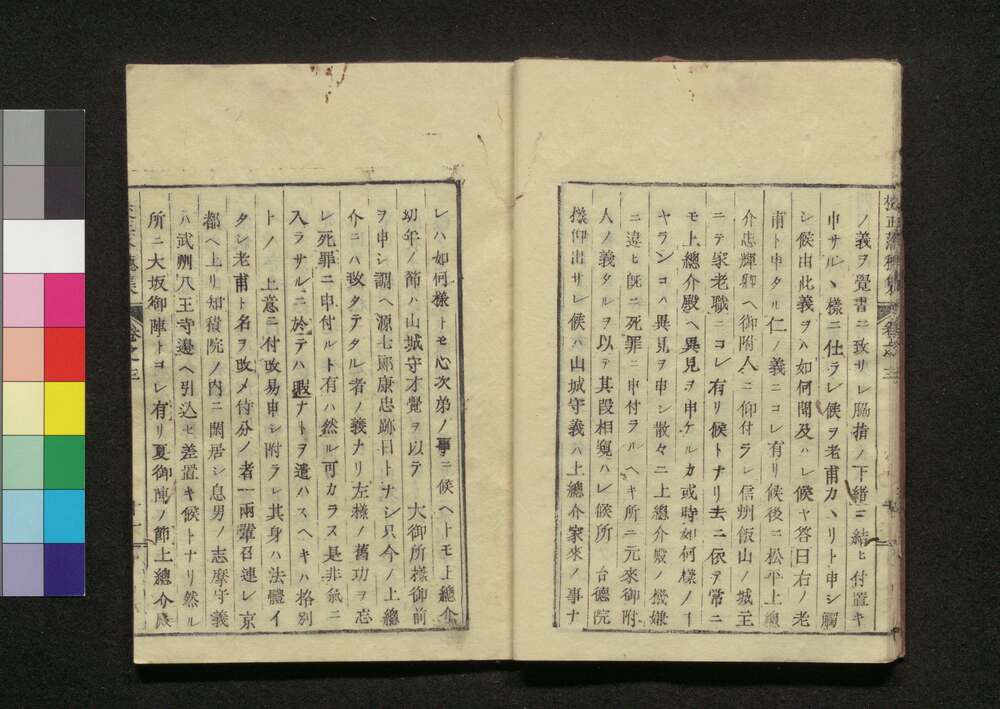 ノ義ヲ覺書ニ致サレ脇指ノ下緒ニ結ヒ付置キ
申サルヽ樣ニ仕ラレ候ヲ老甫カヽリト申シ觸
シ候由此義ヲハ如何聞及ハレ候ヤ答曰右ノ老
甫ト申タル仁ノ義ニコレ有リ候後ニ松平上總
介忠輝卿ヘ御附人ニ仰付ラレ信州飯山ノ城主
ニテ家老職ニコレ有リ候トナリ去ニ依ヲ常ニ
モ上總介殿ヘ異見ヲ申ケルカ或時如何樣ノ
ヤランコハ異見ヲ申シ散々ニ上總介殿ノ機嫌
ニ違ヒ既ニ死罪ニ申付ラルヘキ所ニ元來御附
人ノ義タルヲ以テ其段相窺ハレ候所 台德院
樣仰出サレ候ハ山城守義ハ上總介家來ノ事ナ
レハ如何樣トモ心次弟ノ事ニ候ヘトモ上總介
幼年ノ節ハ山城守才覺ヲ以テ 大御所樣御前
ヲ申シ調ヘ源七郎康忠跡目トナシ只今ノ上總
介ニハ致タテタル者ノ義ナリ左樣ノ舊功ヲ忘
レ死罪ニ申付ルト有ハ然ル可カラス是非氣ニ
入ラサルニ於テハ暇ナトヲ遣ハスヘキハ格別
トノ 上意ニ付改易申シ附ラレ其身ハ法體イ
タシ老甫ト名ヲ改メ侍分ノ者一兩輩召連レ京
都ヘ上リ知積院ノ內ニ閑居シ息男ノ志摩守義
ハ武州八王寺邊ヘ引込セ差置キ候トナリ然ル
所ニ大坂御陣トコレ有リ夏御陣ノ節上總介殿